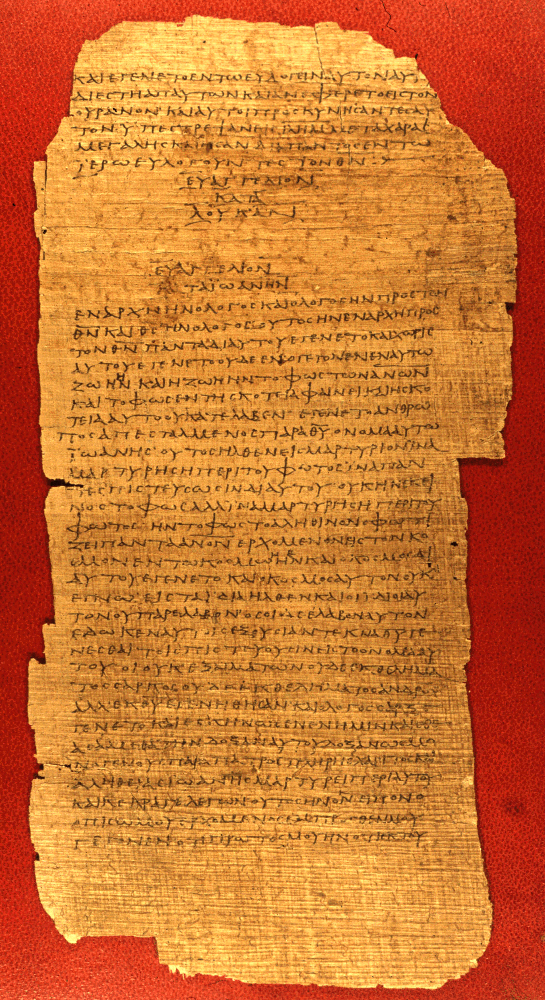 ΚΑΙΕΓΕΝΕΤΟΕΝΤΩΕΥΛΟΓΕΙΝΑΥΤΟΝΑΥΤ
ΔΙΕΣΤΗΑΠΑΥΤΩΝΚΑΙΑΝΕΦΕΡΕΤΟΕΙΣΤΟΝ
ΟΥΡΑΝΟΝΚΑΙΑΥΤΟΙΠΡΟΣΚΥΝΗΣΑΝΤΕΣΑΥ
ΤΟΝΥΠΕΣΤΡΕΨΑΝΕΙΣΙΗΛΗΜΜΕΤΑΧΑΡΑΣ
ΜΕΓΑΛΗΣΚΑΙΗΣΑΝΔΙΑΠΑΝΤΟΣΕΝΤΩ
ΙΕΡΩΕΥΛΟΓΟΥΝΤΕΣΤΟΝΘΝ
ΕΥΑΓΓΕΛΙΟΝ
ΚΑΤΑ
ΛΟΥΚΑΝ
ΕΥΑΓΓΕΛΙΟΝ
ΚΑΤΑΙΩΑΝΗΝ
ΕΝΑΡΧΗΗΝΟΛΟΓΟΣΚΑΙΟΛΟΓΟΣΗΝΠΡΟΣΤΟΝ
ΘΝΚΑΙΘΣΗΝΟΛΟΓΟΣΟΥΤΟΣΗΝΕΝΑΡΧΗΠΡΟΣ
ΤΟΝΘΝΠΑΝΤΑΔΙΑΥΤΟΥΕΓΕΝΕΤΟΚΑΙΧΩΡΙΣ
ΑΥΤΟΥΕΓΕΝΕΤΟΟΥΔΕΕΝΟΓΕΓΟΝΕΝΕΝΑΥΤΩ
ΖΩΗΗΝΚΑΙΗΖΩΗΗΝΤΟΦΩΣΤΩΝΑΝΩΝ
ΚΑΙΤΟΦΩΣΕΝΤΗΣΚΟΤΙΑΦΑΙΝΕΙΚΑΙΗΣΚΟ
ΤΕΙΑΑΥΤΟΟΥΚΑΤΕΛΑΒΕΝΕΓΕΝΕΤΟΑΝΘΡΩ
ΠΟΣΑΠΕΣΤΑΛΜΕΝΟΣΠΑΡΑΘΥΟΝΟΜΑΑΥΤΩ
ΙΩΑΝΗΣΟΥΤΟΣΗΛΘΕΝΕΙΣΜΑΡΤΥΡΙΟΝΙΝΑ
ΜΑΡΤΥΡΗΣΗΠΕΡΙΤΟΥΦΩΤΟΣΙΝΑΠΑΝ
ΤΕΣΠΙΣΤΕΥΣΩΣΙΝΔΙΑΥΤΟΥΟΥΚΗΝΕΚΕΙ
ΝΟΣΤΟΦΩΣΑΛΛΙΝΑΜΑΡΤΥΡΗΣΗΠΕΡΙΤΟΥ
ΦΩΤΟΣΗΝΤΟΦΩΣΤΟΑΛΗΘΙΝΟΝΟΦΩΤΙ
ΖΕΙΠΑΝΤΑΑΝΟΝΕΡΧΟΜΕΝΟΝΕΙΣΤΟΝΚΟ
ΣΜΟΝΕΝΤΩΚΟΣΜΩΗΝΚΑΙΟΚΟΣΜΟΣΔΙ
ΑΥΤΟΥΕΓΕΝΕΤΟΚΑΙΟΚΟΣΜΟΣΑΥΤΟΝΟΥΚ
ΕΓΝΩΕΙΣΤΑΙΔΙΑΗΛΘΕΝΚΑΙΟΙΙΔΙΟΙΑΥ
ΤΟΝΟΥΠΑΡΕΛΑΒΟΝΟΣΟΙΔΕΕΛΑΒΟΝΑΥΤΟΝ
ΕΔΩΚΕΝΑΥΤΟΙΣΕΞΟΥΣΙΑΝΤΕΚΝΑΘΥΓΕ
ΝΕΣΘΑΙΤΟΙΣΠΙΣΤΕΥΟΥΣΙΝΕΙΣΤΟΟΝΟΜΑΑΥ
ΤΟΥΟΙΟΥΚΕΞΑΙΜΑΤΩΝΟΥΔΕΕΚΘΕΛΗΜΑ
ΤΟΣΣΑΡΚΟΣΟΥΔΕΕΚΘΕΛΗΜΑΤΟΣΑΝΔΡΟΣ
ΑΛΛΕΚΘΥΕΓΕΝΝΗΘΗΣΑΝΚΑΙΟΛΟΓΟΣΣΑΡΞΕ
ΓΕΝΕΤΟΚΑΙΕΣΚΗΝΩΣΕΝΕΝΗΜΙΝΚΑΙΕΘΕ
ΑΣΑΜΕΘΑΤΗΝΔΟΞΑΝΑΥΤΟΥΔΟΞΑΝΩΣΜΟ
ΝΟΓΕΝΟΥΣΠΑΡΑΠΑΤΡΟΣΠΛΗΡΗΣΧΑΡΙΤΟΣΚΑΙ
ΑΛΗΘΕΙΑΣΙΩΑΝΗΣΜΑΡΤΥΡΕΙΠΕΡΙΑΥΤΟΥ
ΚΑΙΚΕΚΡΑΓΕΛΕΓΩΝΟΥΤΟΣΗΝΟΝΕΙΠΟΝΟ
ΟΠΙΣΩΜΟΥΕΡΧΟΜΕΝΟΣΕΜΠΡΟΣΘΕΝΜΟΥ
ΓΕΓΟΝΕΝΟΤΙΠΡΩΤΟΣΜΟΥΗΝΟΤΙΕΚΤΟΥ